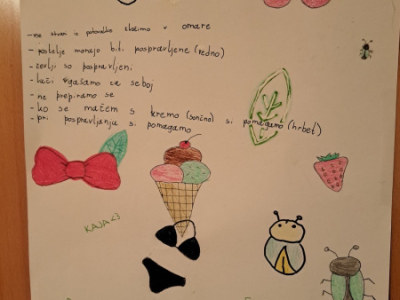 - vse stvari iz potovalke zložimo v omare
- postelje morajo biti pospravljene (redno)
- čevlji so pospravljeni
- luči ugašamo za seboj
- ne prepiramo se
- ko se mažem s kremo (sončno) si pomagamo (hrbet)
- pri pospravljanju si pomagamo
KAJA <3